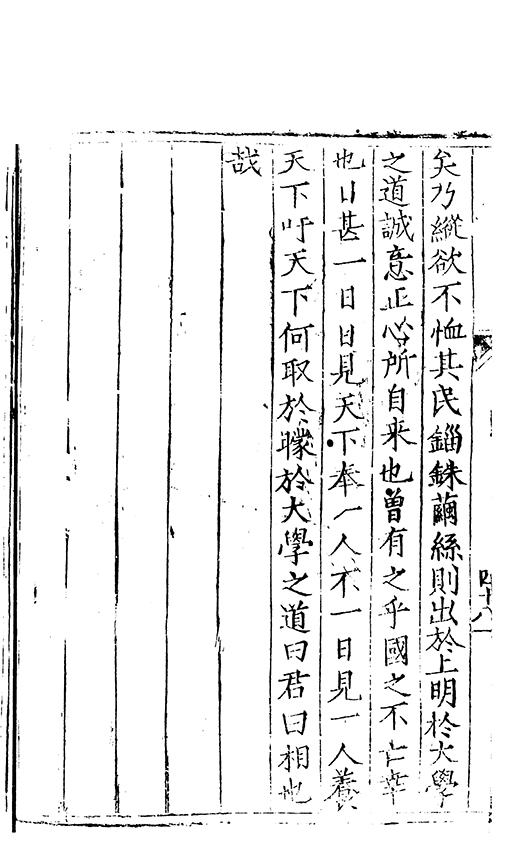 矣乃縱欲不恤其民錙銖繭絲則出於上明於大學
之道誠意正心所自来也曽有之乎國之不亡幸
也日甚一日日見天下奉一人不一日見一人養
天下吁天下何取於矇於大學之道曰君曰相也
哉
四十八